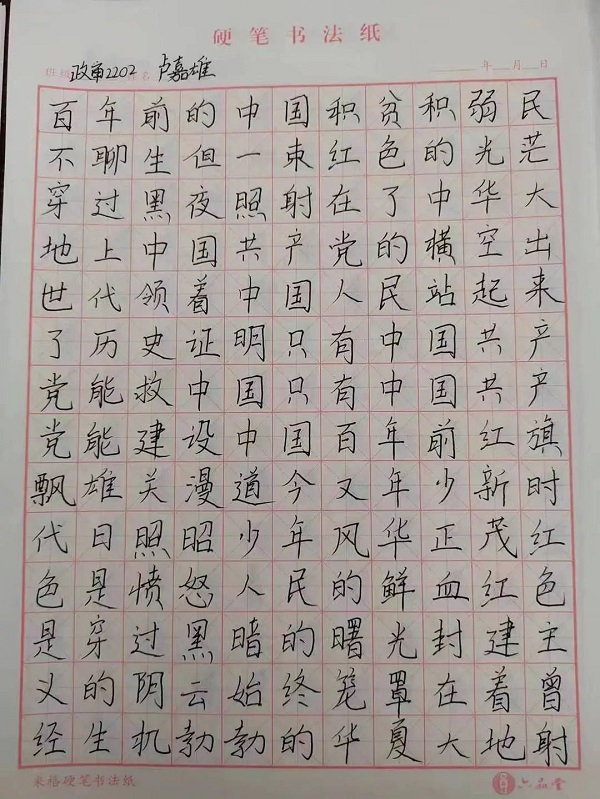 硬笔书法纸
班级 政审2202 姓名 卢嘉雄 年 月 日
百年前的中国积贫积弱民
不聊生但一束红色的光芒
穿过黑夜照射在了中华大
地上中国共产党的横空出
世代领着中国人民站起来
了历史证明只有中国共产
党能救中国只有中国共产
党能建设中国百年前红旗
飘雄关漫道今又年少新时
代日照昭少年风华正茂红
色是愤怒人民的鲜血红色
是穿过黑暗的曙光封建主
义的阴云始终笼罩在着曾
经生机勃勃的华夏大地射
米格硬笔书法纸 六品堂